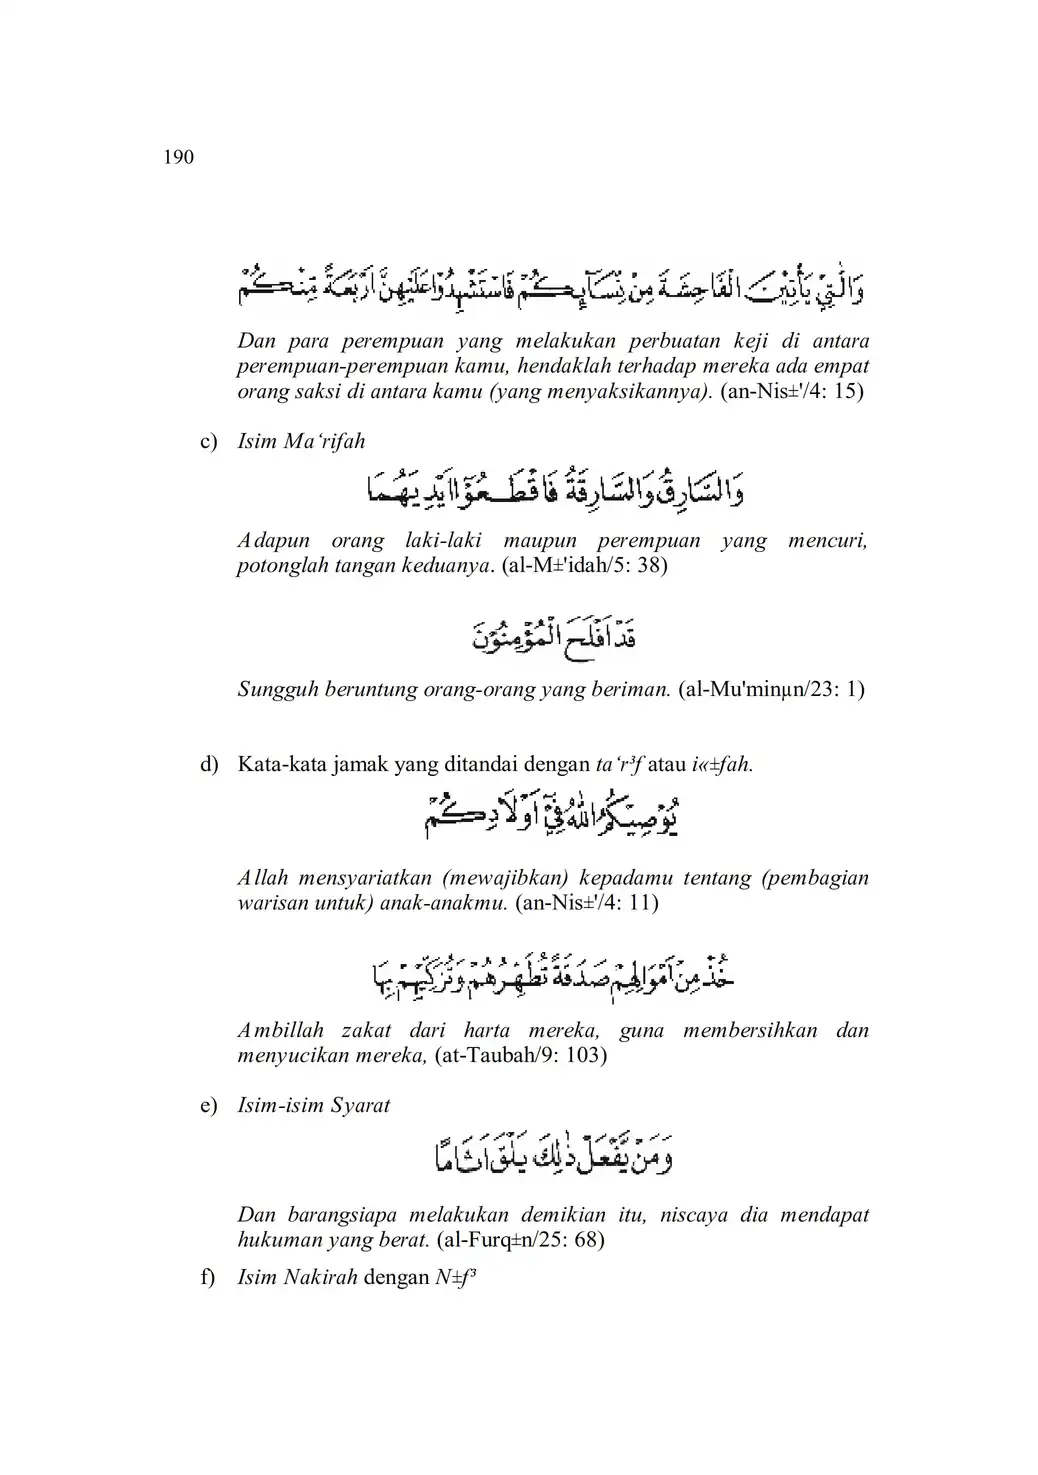 190
وَالّٰتِيْ يَأْتِيْنَ الْفَاحِشَةَ مِنْ نِّسَاۤىِٕكُمْ فَاسْتَشْهِدُوْا عَلَيْهِنَّ اَرْبَعَةً مِّنْكُمْ
Dan para perempuan yang melakukan perbuatan keji di antara
perempuan-perempuan kamu, hendaklah terhadap mereka ada empat
orang saksi di antara kamu (yang menyaksikannya). (an-Nis±'/4: 15)
c) Isim Ma‘rifah
وَالسَّارِقُ وَالسَّارِقَةُ فَاقْطَعُوْٓا اَيْدِيَهُمَا
Adapun orang laki-laki maupun perempuan yang mencuri,
potonglah tangan keduanya. (al-M±'idah/5: 38)
قَدْ اَفْلَحَ الْمُؤْمِنُوْنَ
Sungguh beruntung orang-orang yang beriman. (al-Mu'minµn/23: 1)
d) Kata-kata jamak yang ditandai dengan ta‘r³f atau i«±fah.
يُوْصِيْكُمُ اللّٰهُ فِيْٓ اَوْلَادِكُمْ
Allah mensyariatkan (mewajibkan) kepadamu tentang (pembagian
warisan untuk) anak-anakmu. (an-Nis±'/4: 11)
خُذْ مِنْ اَمْوَالِهِمْ صَدَقَةً تُطَهِّرُهُمْ وَتُزَكِّيْهِمْ بِهَا
Ambillah zakat dari harta mereka, guna membersihkan dan
menyucikan mereka, (at-Taubah/9: 103)
e) Isim-isim Syarat
وَمَنْ يَّفْعَلْ ذٰلِكَ يَلْقَ اَثَامًا
Dan barangsiapa melakukan demikian itu, niscaya dia mendapat
hukuman yang berat. (al-Furq±n/25: 68)
f) Isim Nakirah dengan N±f³